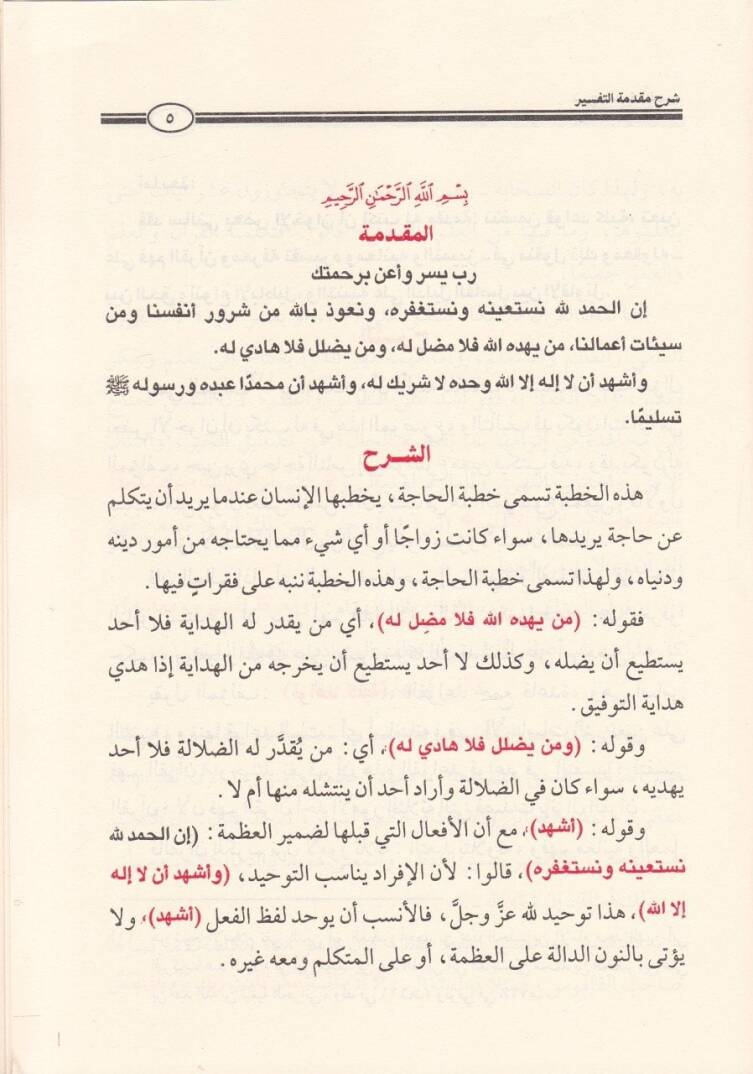 شرح مقدمة التفسير
٥
بِسْمِ اللَّهِ الرَّحْمَٰنِ الرَّحِيمِ
المقدمة
رب يسر وأعن برحمتك
إن الحمد لله نستعينه ونستغفره، ونعوذ بالله من شرور أنفسنا ومن
سيئات أعمالنا، من يهده الله فلا مضل له، ومن يضلل فلا هادي له.
وأشهد أن لا إله إلا الله وحده لا شريك له، وأشهد أن محمدًا عبده ورسوله ﷺ
تسليمًا.
الشـرح
هذه الخطبة تسمى خطبة الحاجة، يخطبها الإنسان عندما يريد أن يتكلم
عن حاجة يريدها، سواء كانت زواجًا أو أي شيء مما يحتاجه من أمور دينه
ودنياه، ولهذا تسمى خطبة الحاجة، وهذه الخطبة ننبه على فقراتٍ فيها.
فقوله: (من يهده الله فلا مضِل له)، أي من يقدر له الهداية فلا أحد
يستطيع أن يضله، وكذلك لا أحد يستطيع أن يخرجه من الهداية إذا هدي
هداية التوفيق.
وقوله: (ومن يضلل فلا هادي له)، أي: من يُقدَّر له الضلالة فلا أحد
يهديه، سواء كان في الضلالة وأراد أحد أن ينتشله منها أم لا.
وقوله: (أشهد)، مع أن الأفعال التي قبلها لضمير العظمة: (إن الحمد لله
نستعينه ونستغفره)، قالوا: لأن الإفراد يناسب التوحيد، (وأشهد أن لا إله
إلا الله)، هذا توحيد لله عزَّ وجلَّ، فالأنسب أن يوحد لفظ الفعل (أشهد)، ولا
يؤتى بالنون الدالة على العظمة، أو على المتكلم ومعه غيره.